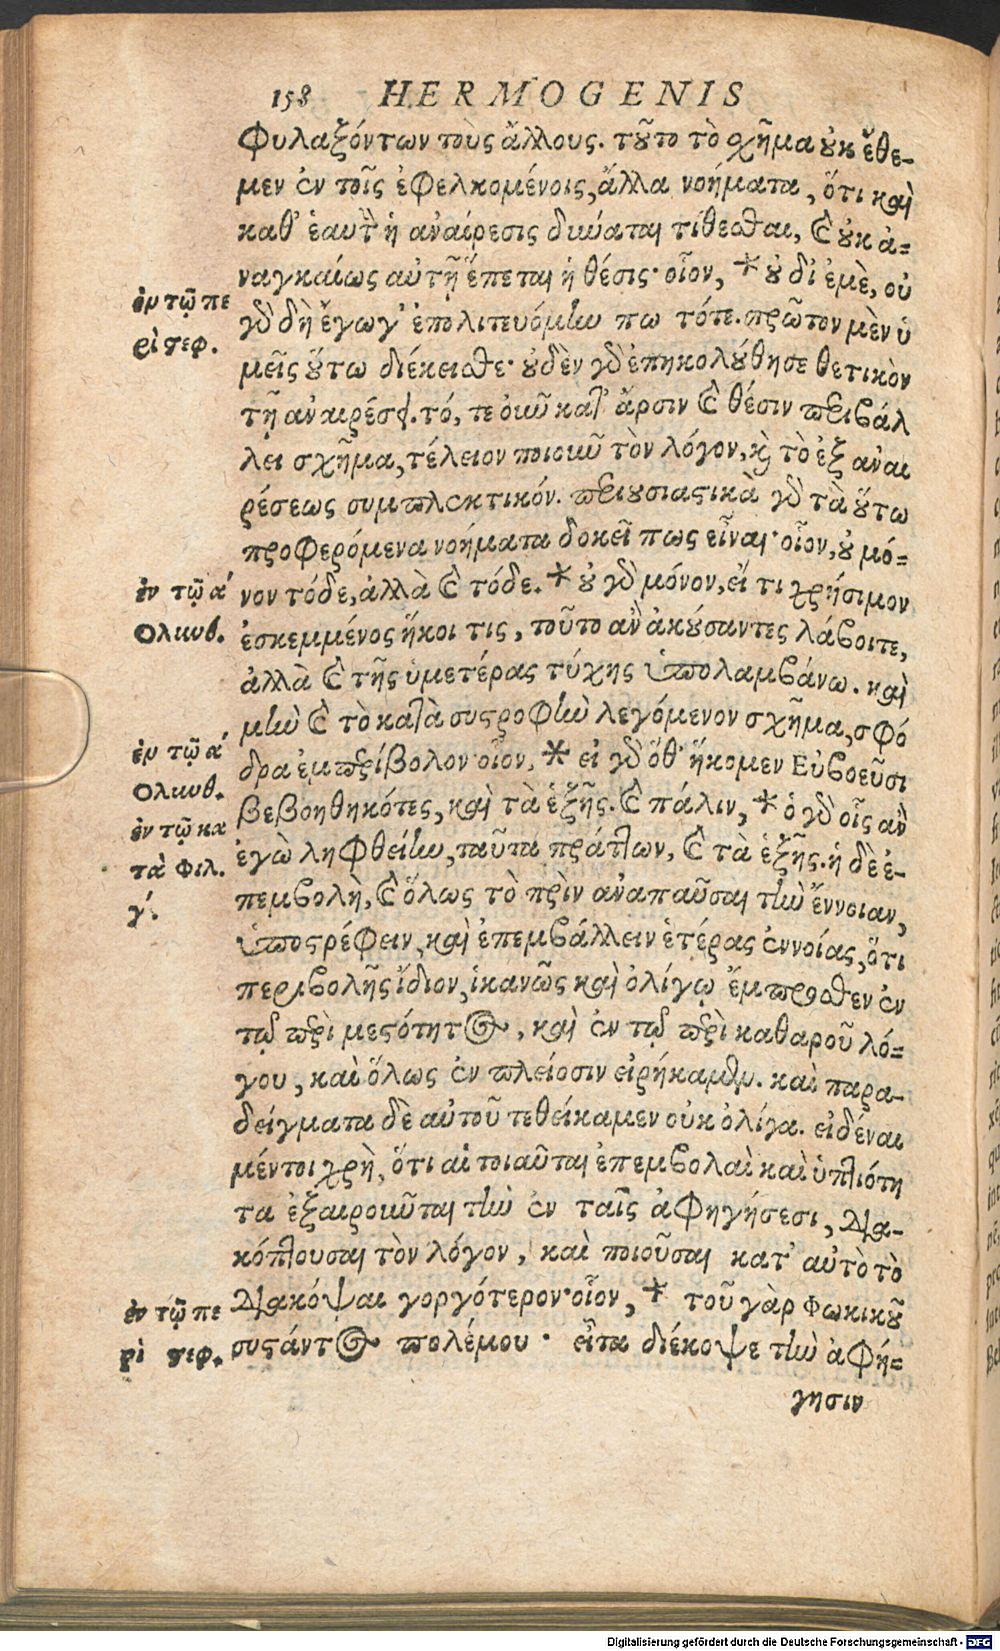 158 HERMOGENIS
φυλαξόντων τοὺς ἄλλους. τȣ͂το τὸ σχῆμα ȣ̓κ ἔθε-
μεν ἐν τοῖς ἐφελκομένοις, ἄλλα νοήματα, ὅτι καὶ
καθ' ἑαυτὴ ἡ ἀναίρεσις δύναται τίθεσθαι, καὶ ȣ̓κ ἀ=
ναγκαίως αὐτῇ ἕπεται ἡ θέσις· οἷον, * ȣ̓ δι' ἐμὲ, οὐ
ἐν τῷ πε
ρὶ στεφ.
γὸ δὴ ἔγωγ' ἐπολιτευόμην πω τότε. πρῶτον μὲν ὑ
μεῖς ȣ̔́τω διέκεισθε· ȣ̓δὲν γὸ ἐπηκολȣ́θησε θετικὸν
τῇ ἀναιρέσει. τό, τε οὖν κατ' ἄρσιν καὶ θέσιν περιβάλ
λει σχῆμα, τέλειον ποιοῦν τὸν λόγον, καὶ τὸ ἐξ ἀναι
ρέσεως συμπλεκτικόν. περιȣσιαστικὰ γὸ τὰ ȣ̔́τω
προφερόμενα νοήματα δοκεῖ πως εἶναι· οἷον, ȣ̓ μό=
ἐν τῷ α΄
Ολυνθ.
νον τόδε, ἀλλὰ καὶ τόδε. * ȣ̓ γὸ μόνον, εἴ τι χρήσιμον
ἐσκεμμένος ἥκοι τις, τοῦτο ἂν ἀκȣ́σαντες λάβοιτε,
ἀλλὰ καὶ τῆς ὑμετέρας τύχης ὑπολαμβάνω. καὶ
μὴν καὶ τὸ κατὰ συστροφὴν λεγόμενον σχῆμα, σφό
ἐν τῷ α΄
Ολυνθ.
δρα ἐμπερίβολον· οἷον, * εἰ γὸ ὅθ' ἥκομεν Εὐβοεῦσι
βεβοηθηκότες, καὶ τὰ ἑξῆς. καὶ πάλιν, * ὁ γὸ οἷς ἂν
ἐν τῷ κα
τὰ Φιλ.
γ΄.
ἐγὼ ληφθείην, ταῦτα πράττων, καὶ τὰ ἑξῆς. ἡ δὲ ἐ-
πεμβολὴ, καὶ ὅλως τὸ πρὶν ἀναπαῦσαι τὴν ἔννοιαν,
ὑποστρέφειν, καὶ ἐπεμβάλλειν ἑτέρας ἐννοίας, ὅτι
περιβολῆς ἴδιον, ἱκανῶς καὶ ὀλίγῳ ἔμπροσθεν ἐν
τῷ περὶ μεστότητος, καὶ ἐν τῷ περὶ καθαροῦ λό=
γου, καὶ ὅλως ἐν πλείοσιν εἰρήκαμεν. καὶ παρα-
δείγματα δὲ αὐτοῦ τεθείκαμεν οὐκ ὀλίγα. εἰδέναι
μέντοι χρὴ, ὅτι αἱ τοιαῦται ἐπεμβολαὶ καὶ ὑπτιότη
τα ἐξαιροῦνται τὴν ἐν ταῖς ἀφηγήσεσι, δια-
κόπτουσαι τὸν λόγον, καὶ ποιοῦσαι κατ' αὐτὸ τὸ
ἐν τῷ πε
ρὶ στεφ.
διακόψαι γοργότερον· οἷον, * τοῦ γὰρ Φωκικȣ͂
συστάντος πολέμου· εἶτα διέκοψε τὴν ἀφή=
γησιν
Digitalisierung gefördert durch die Deutsche Forschungsgemeinschaft - DFG